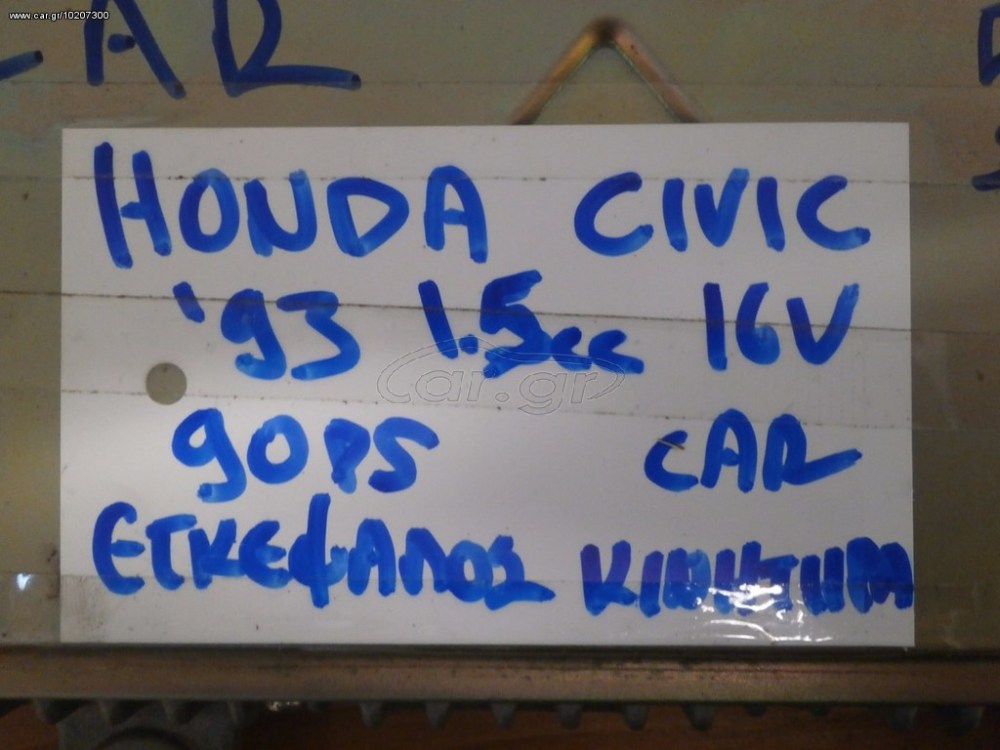 www.car.gr/10207300
CAR
HONDA CIVIC
'93 1.5cc 16V
car.gr
90PS CAR
ΕΓΚΕΦΑΛΟΣ